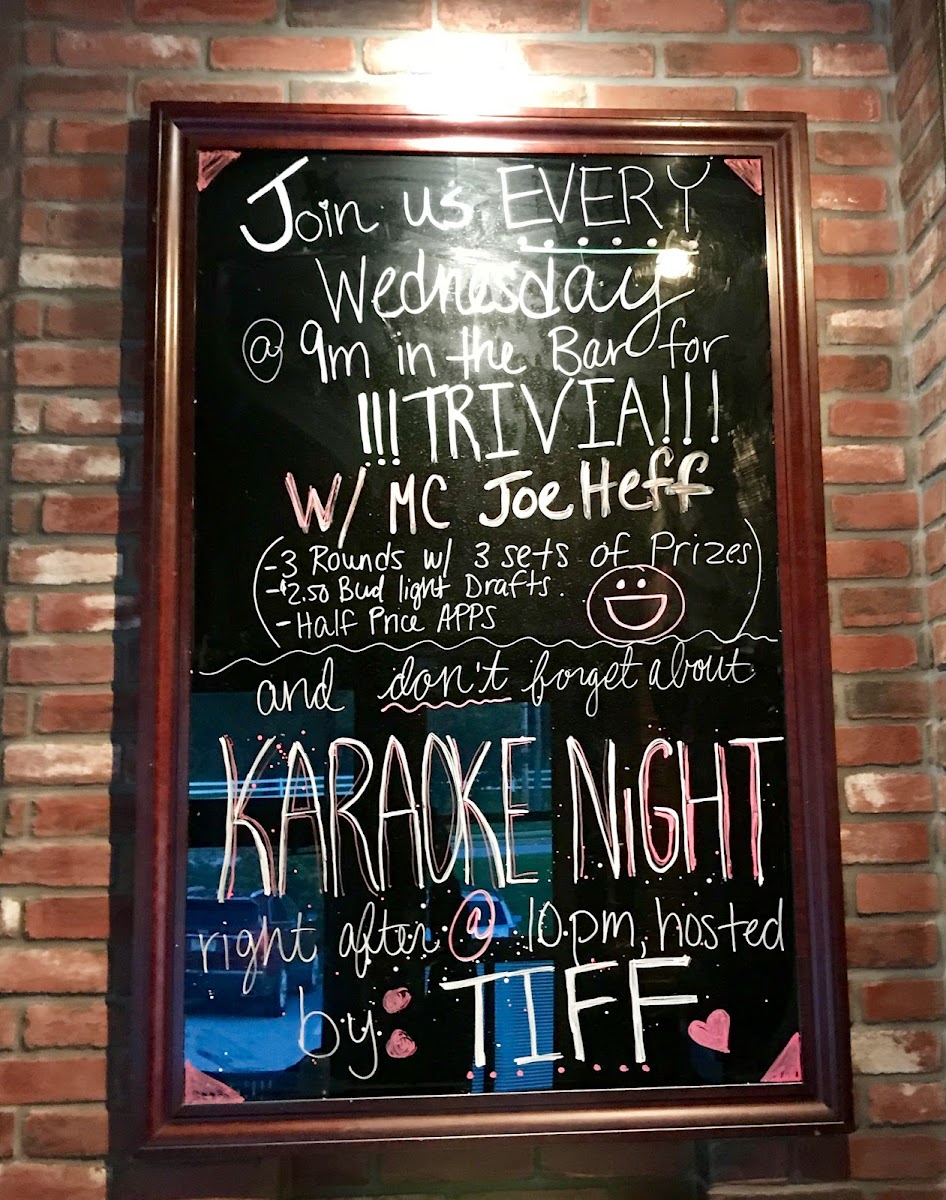 Join us EVERY
Wednesday
@ 9m in the Bar for
!!!TRIVIA!!!
W/ MC Joe Heff
(-3 Rounds w/ 3 sets of Prizes)
-$2.50 Bud light Drafts.
-Half Price APPS
and don't forget about
KARAOKE NiGHT
right after @ 10pm, hosted
by: TIFF